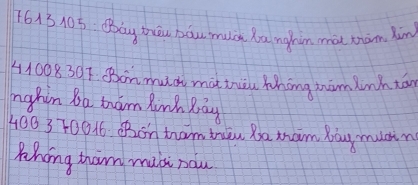 7613105: Bảy triệu sáu mười ba nghìn một trăm linh
41008307: Bốn mươi một triệu không trăm linh tám
nghìn ba trăm linh bảy
400370016: Bốn trăm triệu ba trăm bảy mươi n
không trăm mười sáu